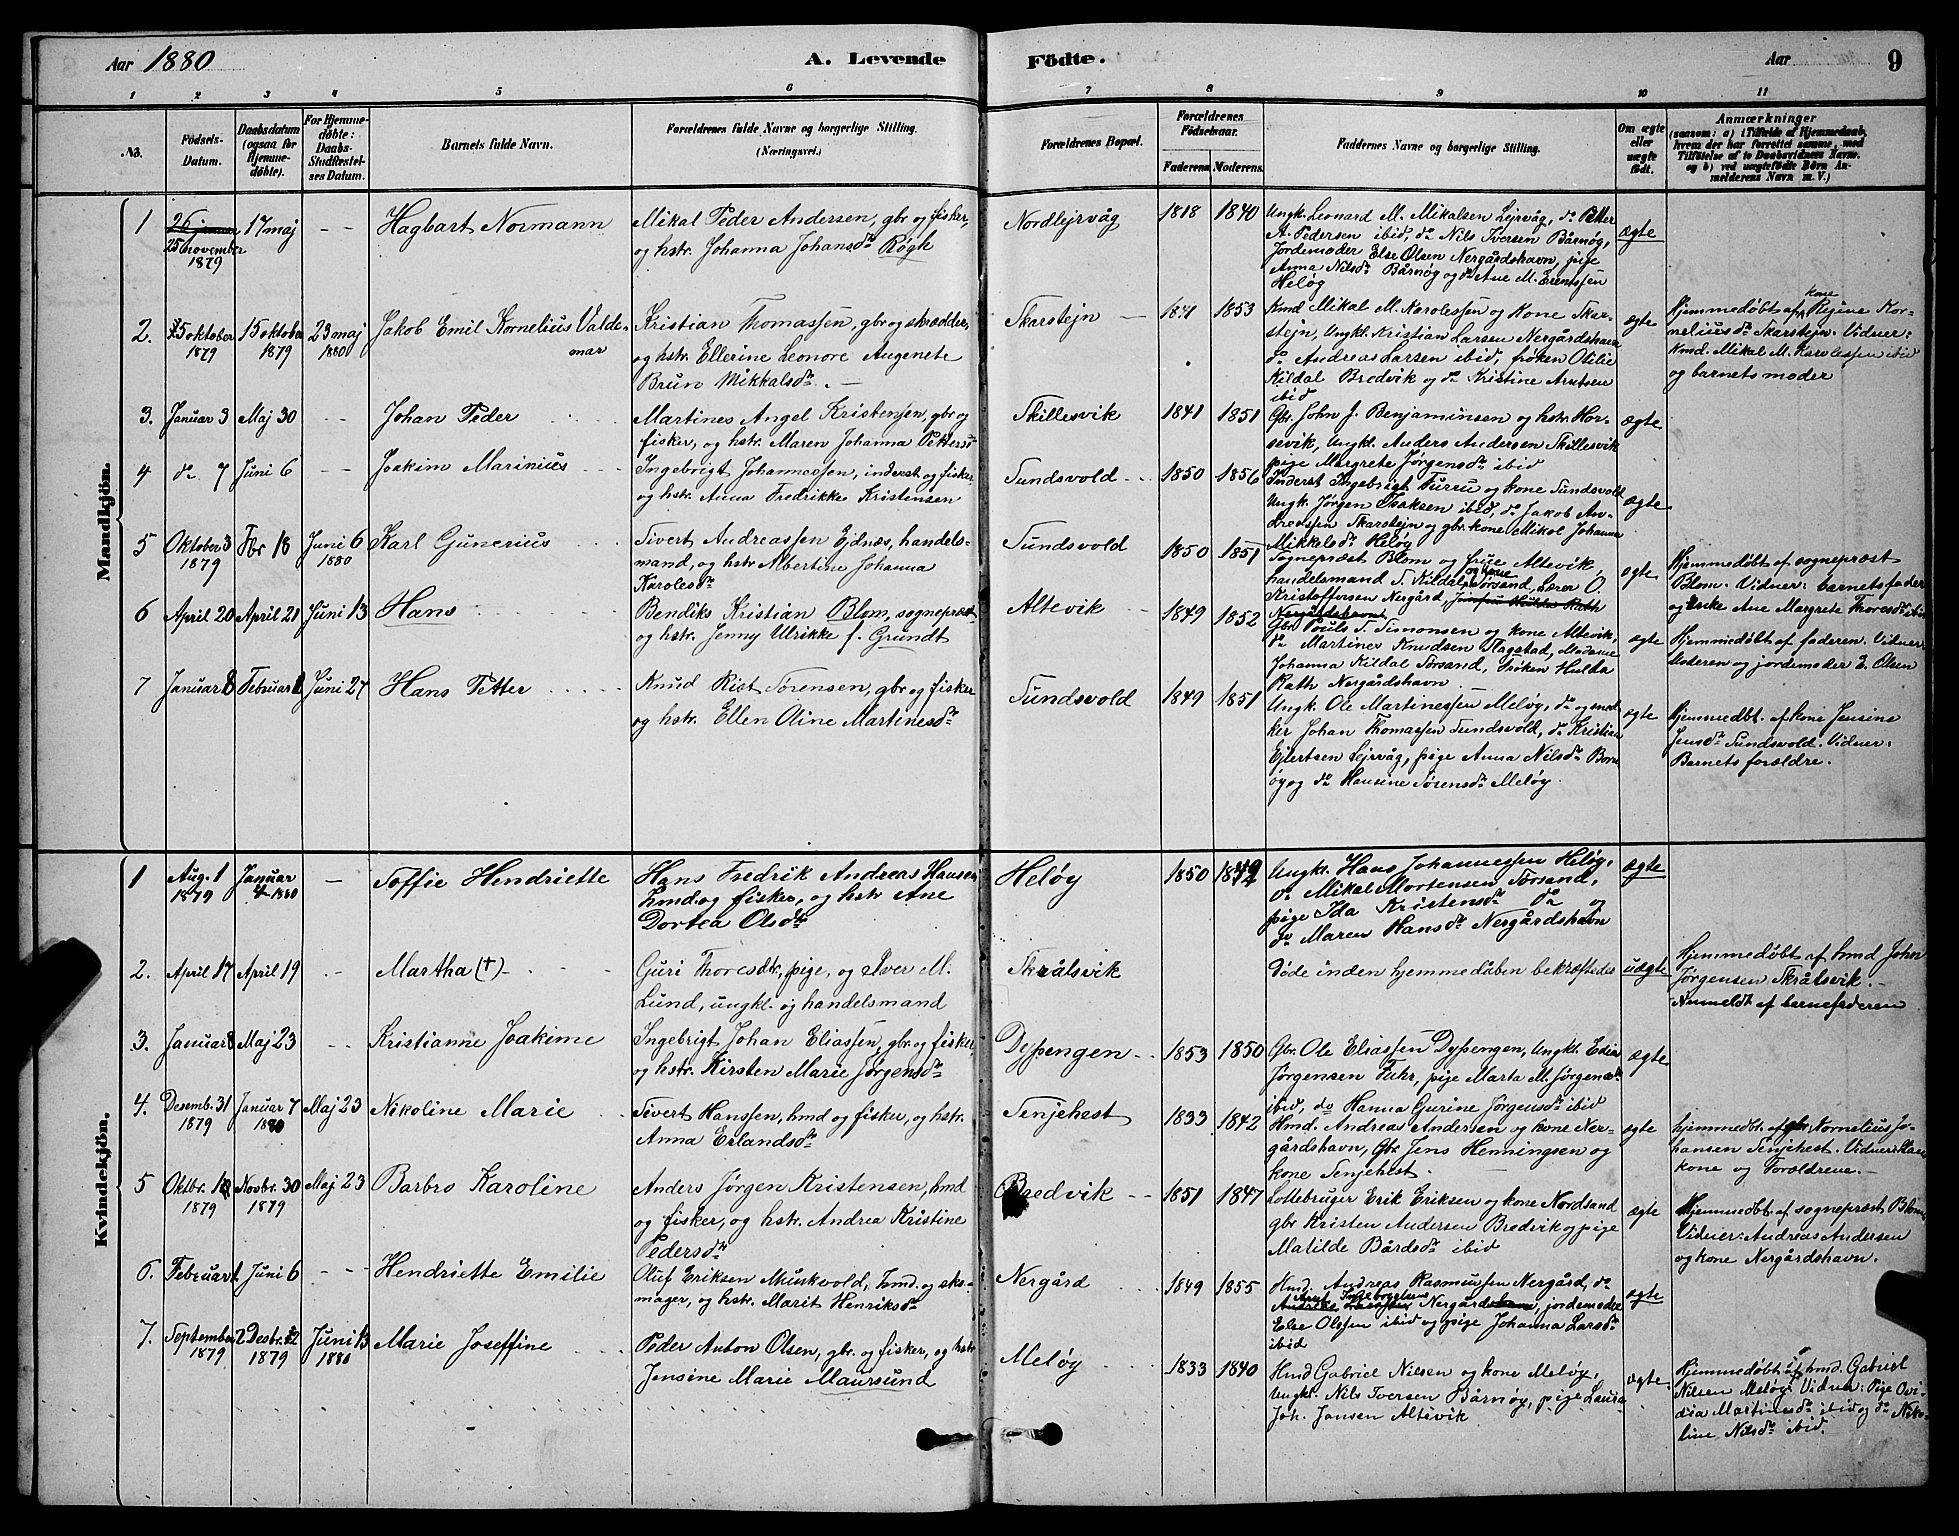 Aar 1880
A. Levende
Födte.
Aar
9
1 2 3 4 5 6 7 8 9 10 11
No.
Födsels-
Datum.
Daabsdatum
(ogsaa for
Hjemme-
döbte).
For Hjemme-
döbte:
Daabs-
Stadfæstel-
ses Datum.
Barnets fulde Navn.
Forældrenes fulde Navne og borgerlige Stilling.
(Næringsvei.)
Forældrenes Bopæl.
Forældrenes
Födselsaar.
Faderens Moderens
Faddernes Navne og borgerlige Stilling.
Om ægte
eller
uægte
födt.
Anmærkninger
(saasom: a) i Tilfælde af Hjemmedaab,
hvem der har forrettet samme, med
Tilföielse af to Daabsvidners Navne,
og b) ved uægtefödte Börn An-
melderens Navn m. V.)
Mandkjön.
1
26 januar
25 november
1879
17 maj
Hagbart Normann
Mikal Peder Andersen, gbr og fisker,
og hstr. Johanna Johansdtr Røgh
Nordlejrvåg
1818 1840
Ungk. Leonard M. Mikalsen Lejrvåg, do Petter
A. Pedersen ibid, do Nils Iversen Bårnøg,
Jordemoder Else Olsen Nergårdshavn, pige
Anna Nilsdtr Bårnøg og do Ane M. Erentsen
Heløg
ægte
2.
25 oktober
1879
15 oktober
1879
23 maj
1880
Jakob Emil Kornelius Valde-
mar
Kristian Thomassen, gbr og skrædder,
og hstr. Ellerine Leonore Augenete
Brun Mikkalsdtr. —
Skarstejn
1841 1853
Kmd Mikal M. Karolessen og Kone Skar-
stejn, Ungkl. Kristian Larsen Nergårdshavn
do Andreas Larsen ibid, frøken Otilie
Kildal Bredvik og do Kristine Arntsen
ibid
ægte
Hjemmedøbt af kone Rejine Kor-
neliusdtr Skarstejn. Vidner:
Kmd. Mikal M. Karolessen ibid
og barnets moder
3. Januar 3 Maj 30
Johan Peder
Martines Angel Kristensen, gbr og
fisker, og hstr. Maren Johanna Pettersd
Skillesvik
1841 1851
Gbr. John J. Benjaminsen og hstr. Hor-
sevik, Ungkl. Anders Andersen Skillesvik
pige Margrete Jørgensdtr ibid
ægte
4 do 7 Juni 6
Joakim Marinius
Ingebrigt Johannessen, inderst og fisker
og hstr. Anna Fredrikke Kristensen
Sundsvold
1850 1856
Inderst Ingebrigt Furru og kone Sundsvold
Ungk. Jørgen Isaksen ibid, do Jakob An-
dreassen Skarstejn og gbr. kone Mikal Johanna
Mikkelsdtr Heløg
ægte
5
Oktober 3
1879
Fbr 18
Juni 6
1880
Karl Gunerius
Sivert Andreassen Ejdnæs, handels-
mand, og hstr Albertine Johanna
Karolesdtr
Sundsvold
1850 1851
Sognepræst Blom og frue Altevik,
handelsmand S. Kildal og kone Sørsand, Lærer O.
Kristoffersen Nergård,
Nergårdshavn
ægte
Hjemmedøbt af sognepræst
Blom. Vidner: barnets fader
og enke Ane Margrete Thoresdtr ibid
6 April 20 April 21 Juni 13
Hans
Bendiks Kristian Blom, sognepræst
og hstr. Jenny Ulrikke f. Grundt
Altevik
1849 1852
Gbr. Pouls S. Simonsen og kone Altevik,
do Martines Knudsen Flagstad, Madame
Johanna Kildal Sørsand, Frøken Hulda
Rath Nergårdshavn
ægte
Hjemmedøbt af faderen. Vidner
Moderen og jordemoder E. Olsen
7 Januar 8 Februar 1 Juni 27
Hans Petter
Knud Rist Sørensen, gbr og fisker
og hstr. Ellen Oline Martinesdtr
Sundsvold
1849 1851
Ungk. Ole Martinessen Meløg, do og
ker Johan Thomassen Sundsvold, do Kristian
Ejertsen Lejrvåg, pige Anna Nilsdtr Bårn
øg og do Hansine Sørensdtr Meløg.
ægte
Hjemmedbt. af kone Jensine
Jensdtr Sundsvold. Vidner:
Barnets forældre.
Kvindekjön.
1
Aug. 1
1879
Januar
4 1880
Soffie Hendriette
Hans Fredrik Andreas Hansen
hmd. og fisker, og hstr Ane
Dortea Olsdtr
Heløg
1850 1842
Ungkr. Hans Johannessen Heløg,
do Mikal Mortensen Sørsand,
pige Ida Kristensdtr do og
do Maren Hansdtr Nergårdshavn
ægte
2. April 17 April 19
Martha (†)
Guri Thoresdtr, pige, og Iver M.
Lund, ungkl. og handelsmand
Skråtsvik
Døde inden hjemmedåben bekræftedes
uægte
Hjemmedøbt af hmd John
Jørgensen Skråtsvik. —
Anmeldt af barnefaderen
3. Januar 8 Maj 23
Kristianne Joakime
Ingebrigt Johan Eliassen, gbr og fisker,
og hstr. Kirsten Marie Jørgensdtr
Dyssengen
1853 1850
Gbr. Ole Eliassen Dyssengen, Ungkl. Edias
Jørgensen Fuhr, pige Marta M. Jørgensdtr
ibid, do Hanna Gurine Jørgensdtr ibid
ægte
4.
Desemb. 31
1879
Januar 7
1880
Maj 23
Nikoline Marie
Sivert Hanssen, hmd og fisker, og hstr.
Anna Erlandsdtr
Senjehest
1833 1842
Hmd. Andreas Andersen og kone Ner-
gårdshavn, Gbr. Jens Henningsen og
kone Senjehest.
ægte
hjemmedbt. af gbr. Kornelius Jo-
hansen Senjehest. Vidner: Hans
kone og Forældrene. —
5
Oktbr. 10
1879
Novbr. 30
1879
Maj 23
Barbro Karoline
Anders Jørgen Kristensen, hmd
og fisker, og hstr. Andrea Kristine
Pedersdtr
Bredvik
1851 1847
Lottebruger Erik Eriksen og kone Nordsand
gbr Kristen Andersen Bredvik og pige
Matilde Bårdsdtr ibid
ægte
Hjemmedbt. af sognepræst Blom
Vidner: Andreas Andersen
og kone Nergårdshavn.
6. Februar 1. Juni 6
Hendriette Emilie
Oluf Eriksen Munkvold, hmd. og sko-
mager, og hstr. Marit Henriksdtr
Nergård
1849 1855
Hmd. Andreas Rasmussen Nergård, do
Arnt Ingebrigtsen Nergårdshavn, jordemoder
Else Olsen ibid og pige Johanna Larsdtr
ibid
ægte
7.
September 2
1879
Desbr. 12
1879
Juni 13
1880
Marie Joseffine
Peder Anton Olsen, gbr. og fisker, og hstr
Jensine Marie Maursund
Meløg
1833 1840
Hmd Gabriel Nilsen og kone Meløg,
Ungkl. Nils Iversen Bårnøg, pige Laura
Joh. Jansen Altevik
ægte
Hjemmedøbt af hmd. Gabriel
Nilsen Meløg. Vidner: Pige Ovi-
dia Martinesdtr ibid og do Niko-
line Nilsdtr ibid.